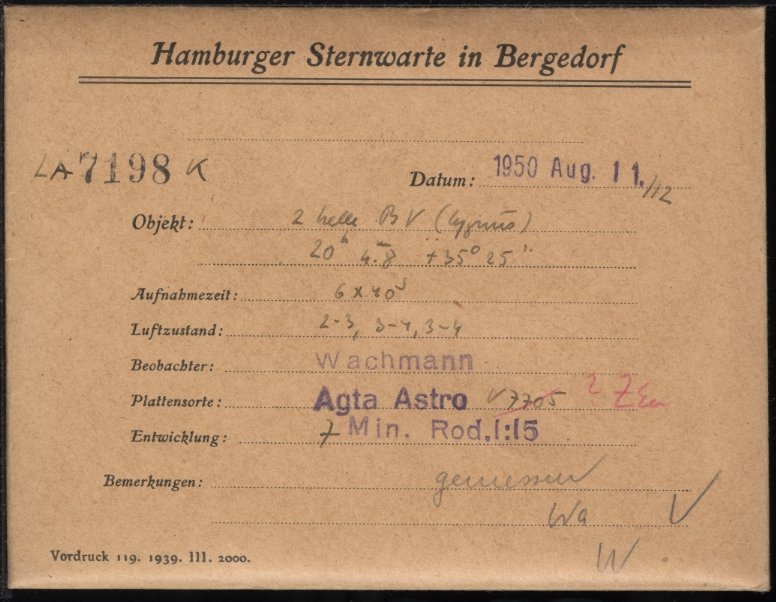 Hamburger Sternwarte in Bergedorf
LA 7198 K
Datum: 1950 Aug. 11./12
Objekt: 2 helle BV (Cygnus)
20h 4.m8 +35° 25'
Aufnahmezeit: 6 x 40s
Luftzustand: 2-3, 3-4, 3-4
Beobachter: Wachmann
Plattensorte: Agta Astro V 7705
Entwicklung: 7 Min. Rod. 1:15
Bemerkungen: gemessen
Wa V
W
Vordruck 119. 1939. III. 2000.